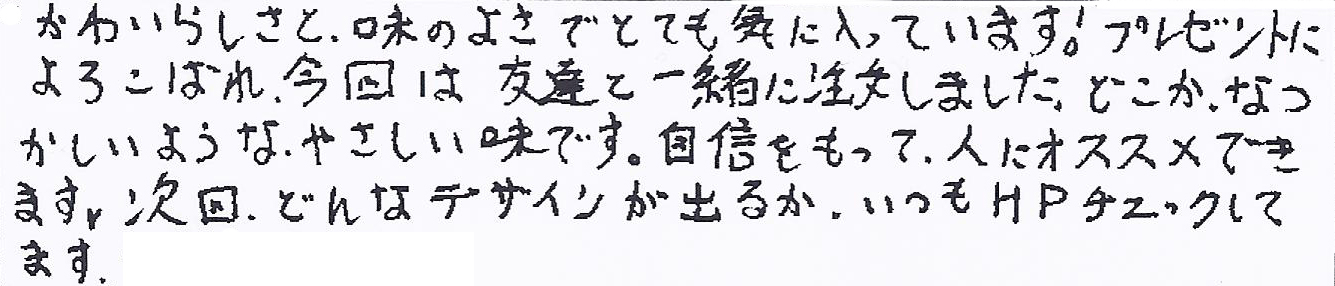 かわいらしさと、味のよさでとても気に入っています！プレゼントに
よろこばれ、今回は友達と一緒に注文しました。どこか、なつ
かしいような、やさしい味です。自信をもって、人にオススメでき
ます。次回、どんなデザインが出るか、いつもHPチェックして
ます。